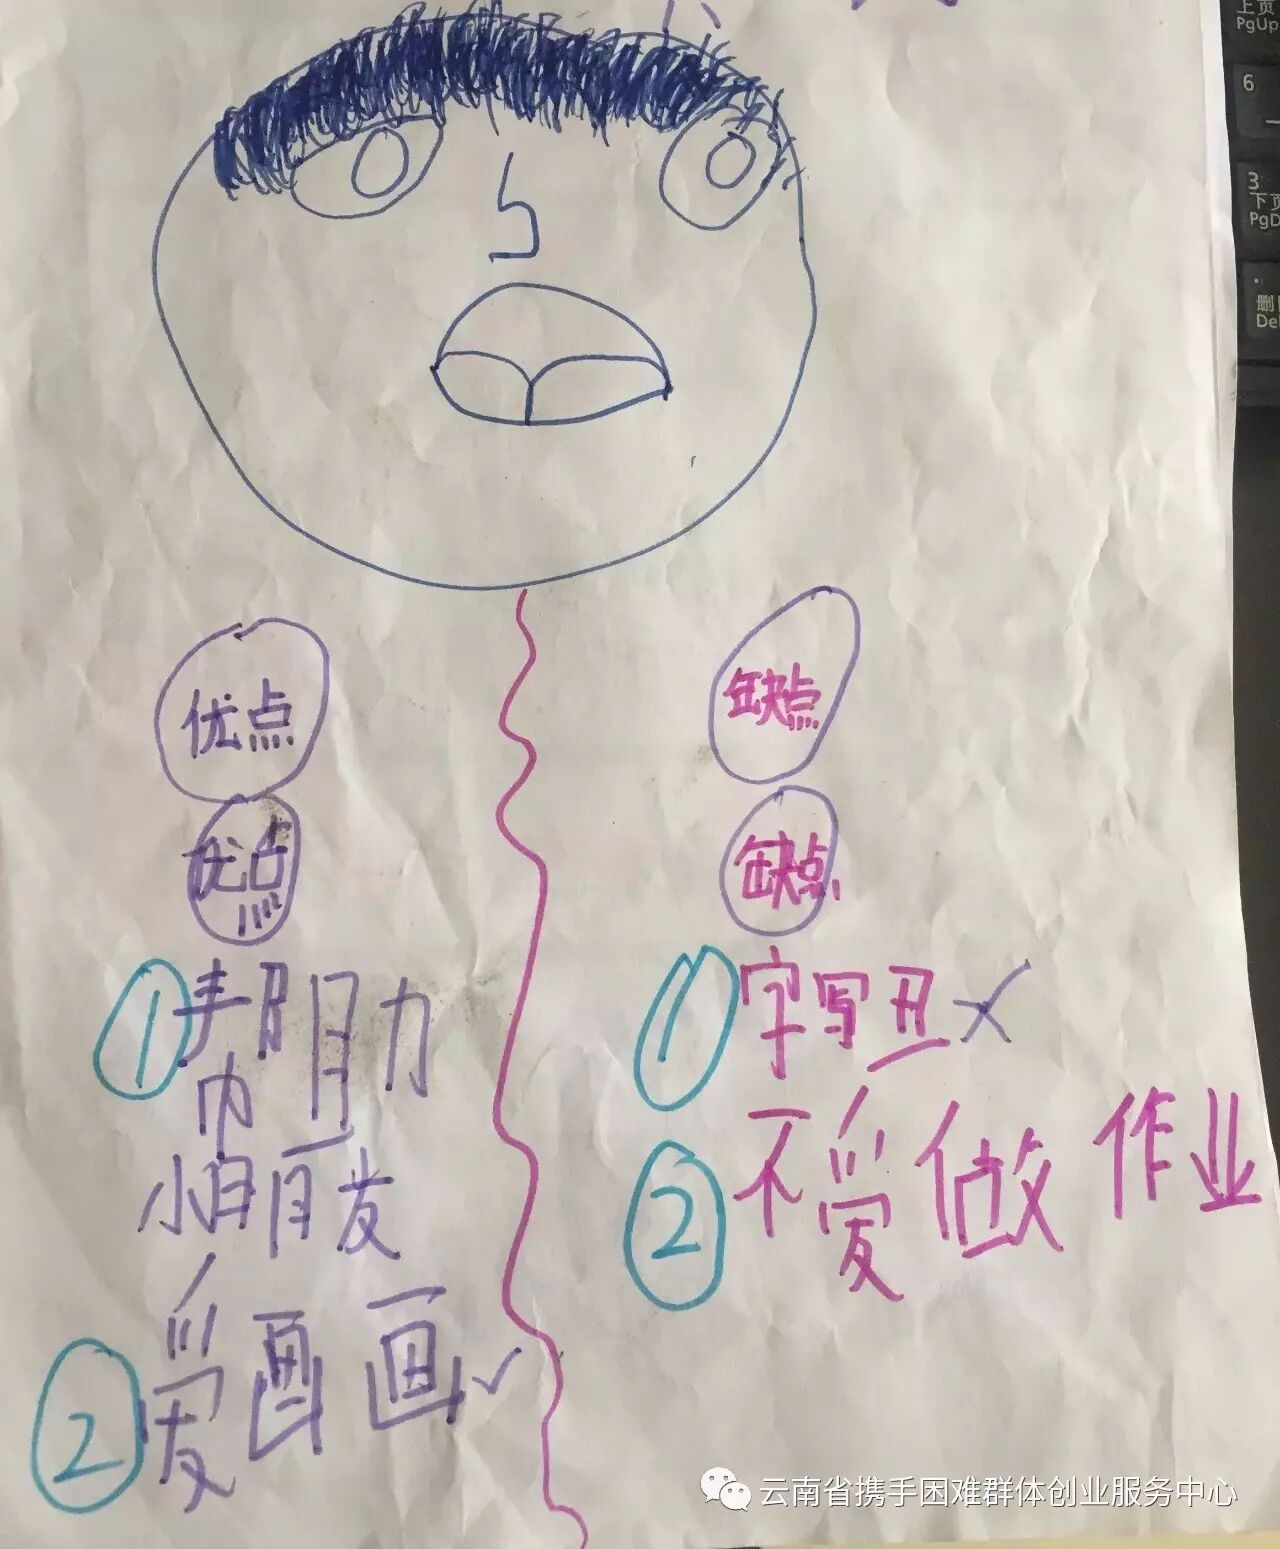 上页
PgUp
6
3
下页
PgD
.
De
优点
优点
①帮助
小朋友
②爱画画✓
缺点
缺点
①字写丑×
②不爱做作业
云南省携手困难群体创业服务中心